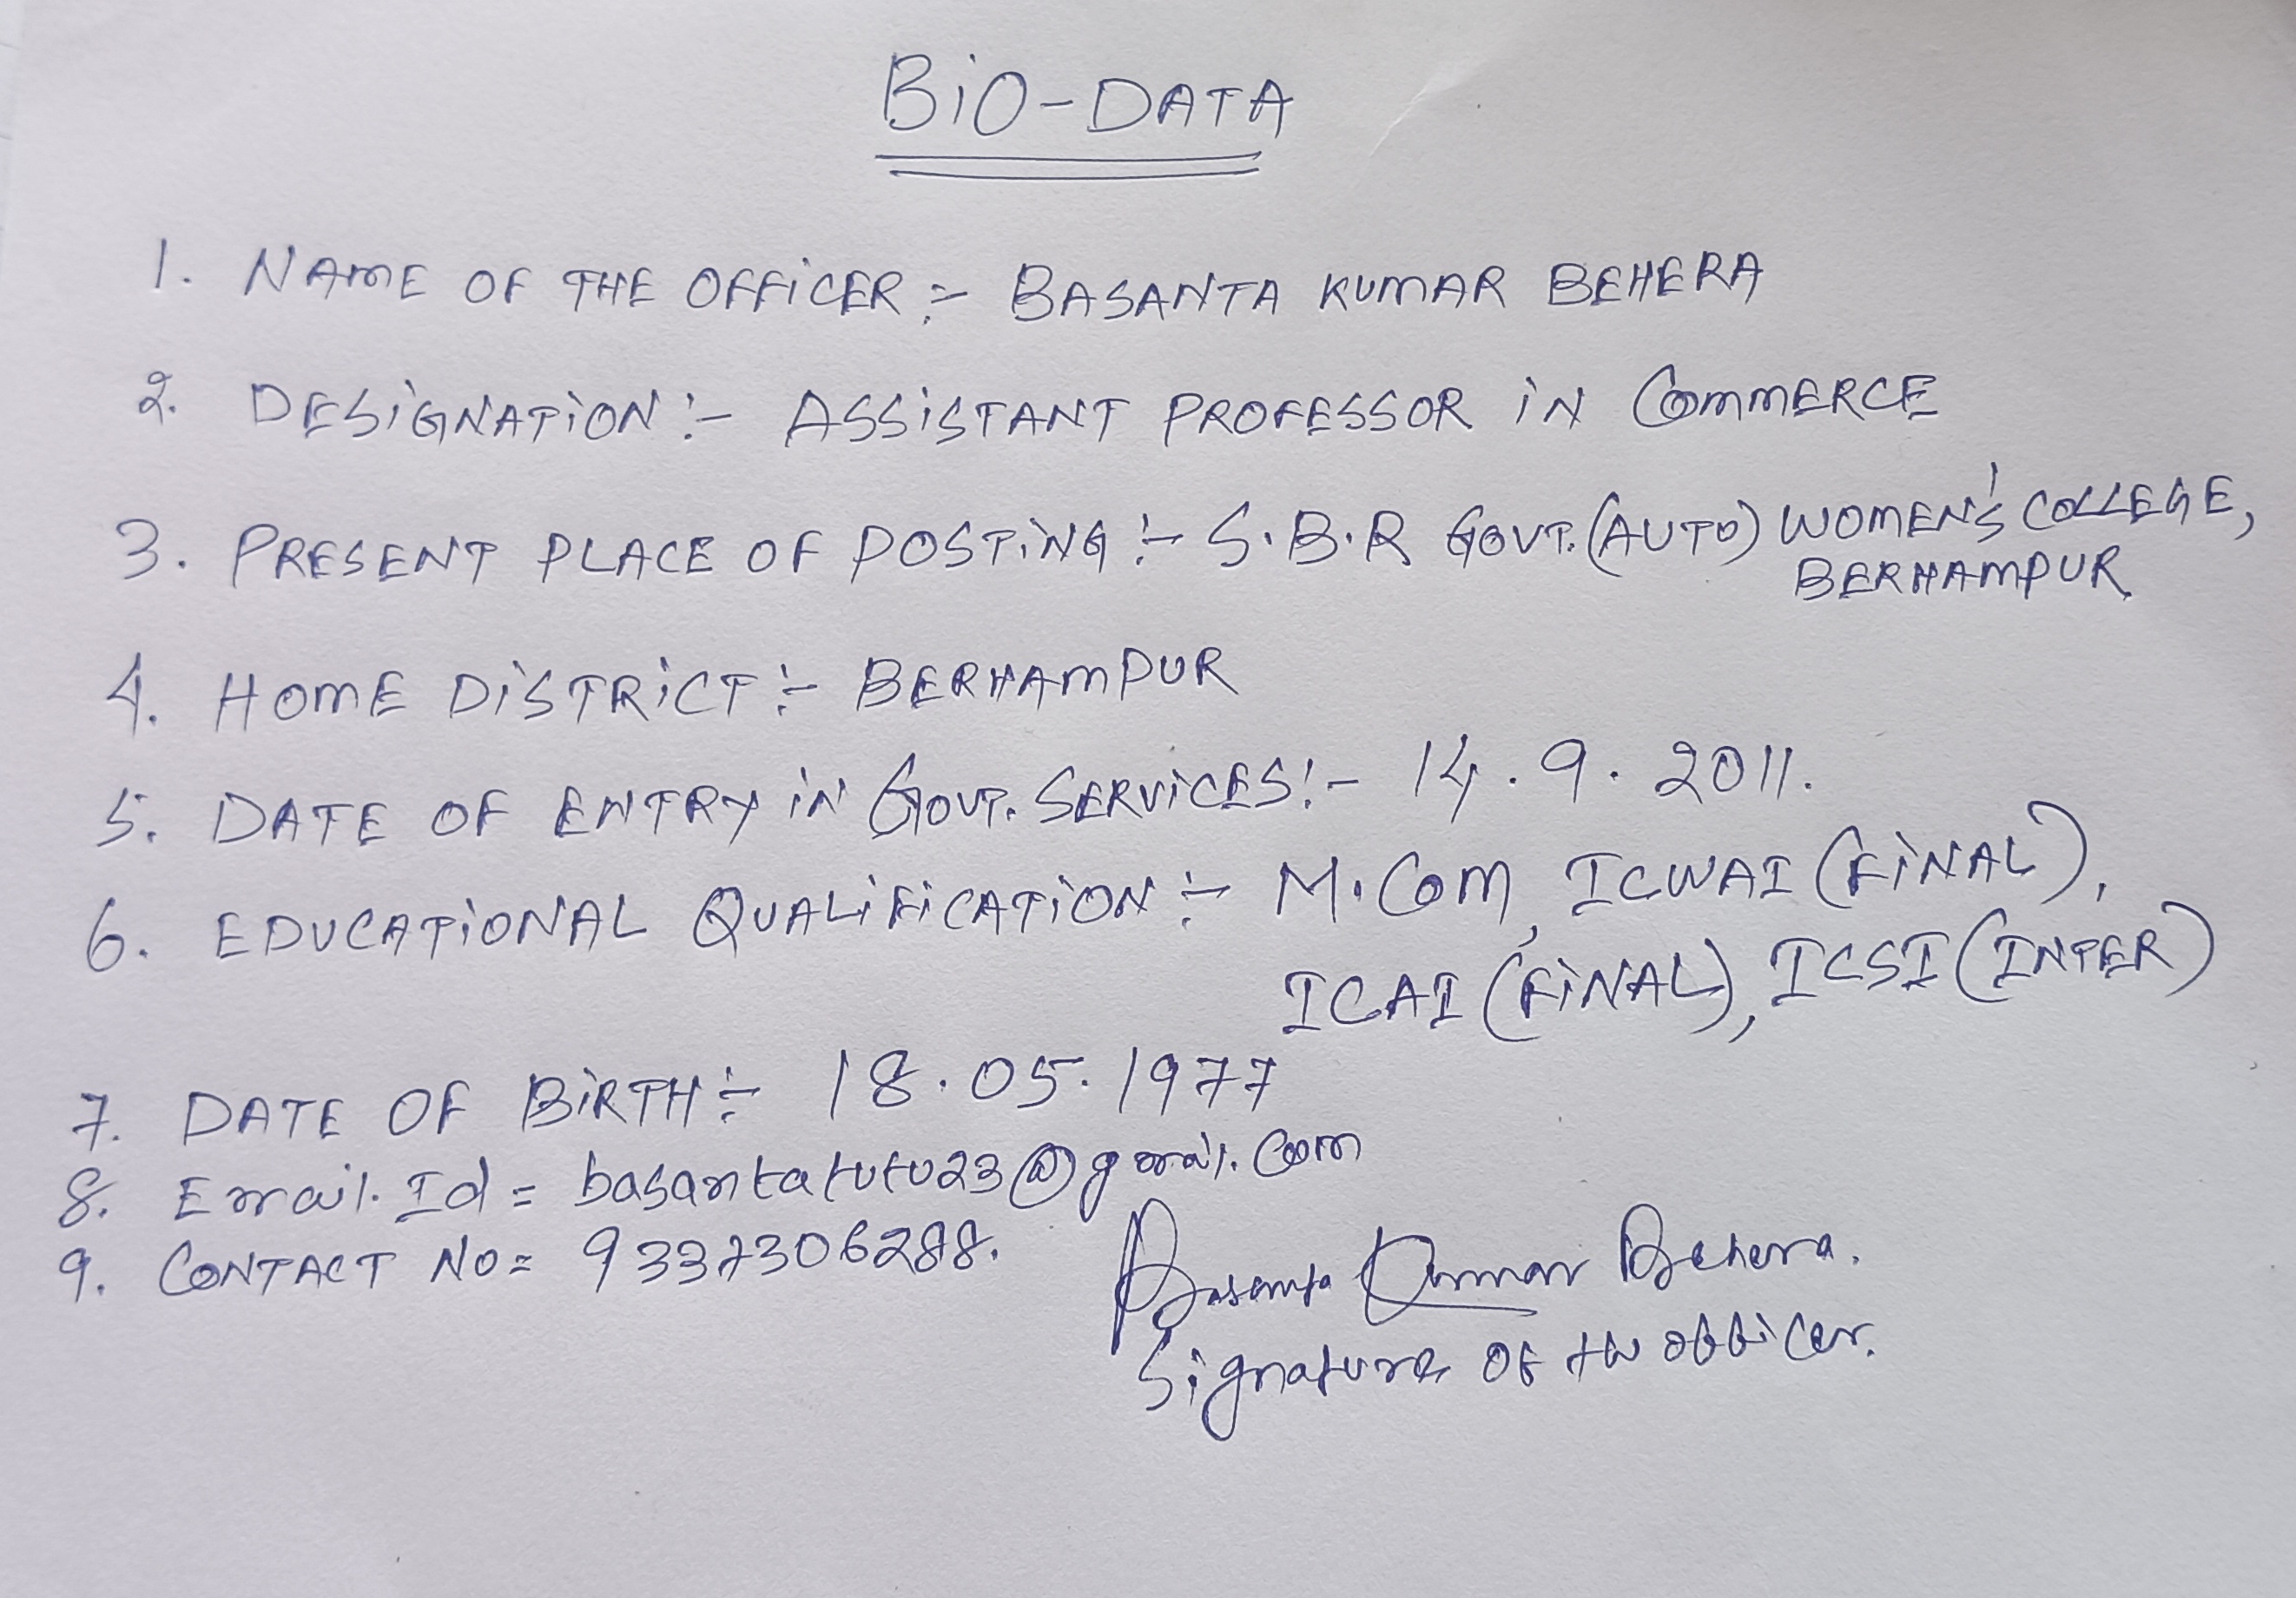 BiO-DATA
1. NAME OF THE OFFiCER :- BASANTA KUMAR BEHERA
2. DESiGNATiON :- ASSiSTANT PROFESSOR iN COMMERCE
3. PRESENT PLACE OF POSTiNG :- S.B.R GOVT. (AUTO) WOMEN'S COLLEGE,
BERHAMPUR
4. HOME DiSTRiCT :- BERHAMPUR
5. DATE OF ENTRY iN GOVT. SERViCES :- 14.9.2011.
6. EDUCATiONAL QUALiFiCATiON :- M.COM, ICWAI (FiNAL),
ICAI (FiNAL), ICSI (INTER)
7. DATE OF BiRTH :- 18.05.1977
8. Email. Id = basantatutu23@gmail.com
9. CONTACT NO = 9337306288.
Basanta Kumar Behera.
Signature of the officer.